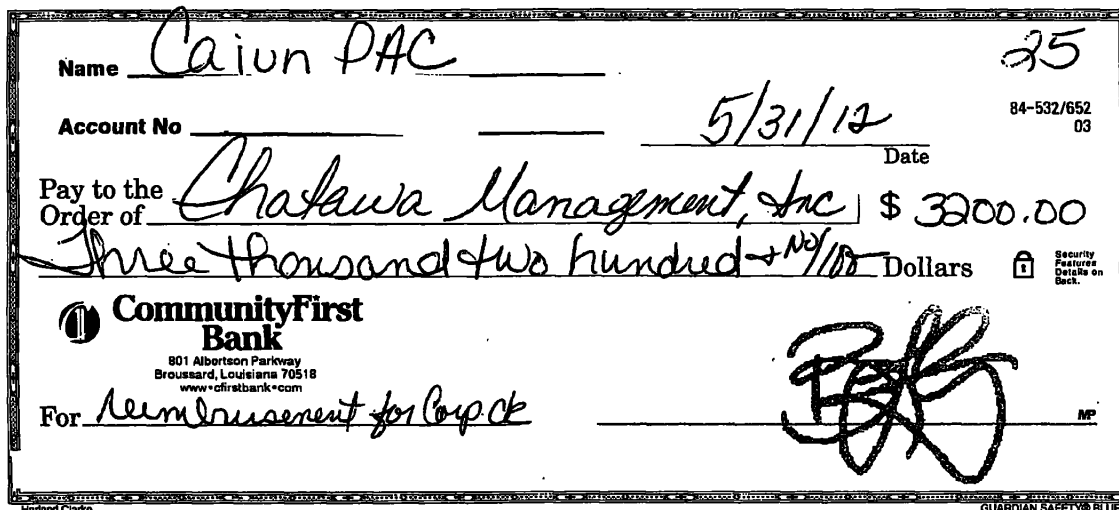 Name Cajun PAC 25
Account No 5/31/12 84-532/652
03
Date
Pay to the
Order of Chatawa Management, Inc $ 3200.00
Three thousand two hundred + No/100 Dollars
Security
Features
Details on
Back.
CommunityFirst
Bank
801 Albertson Parkway
Broussard, Louisiana 70518
www•cfirstbank•com
For reimbrusement for Corp. ck
MP
Harland Clarke GUARDIAN SAFETY® BLUE